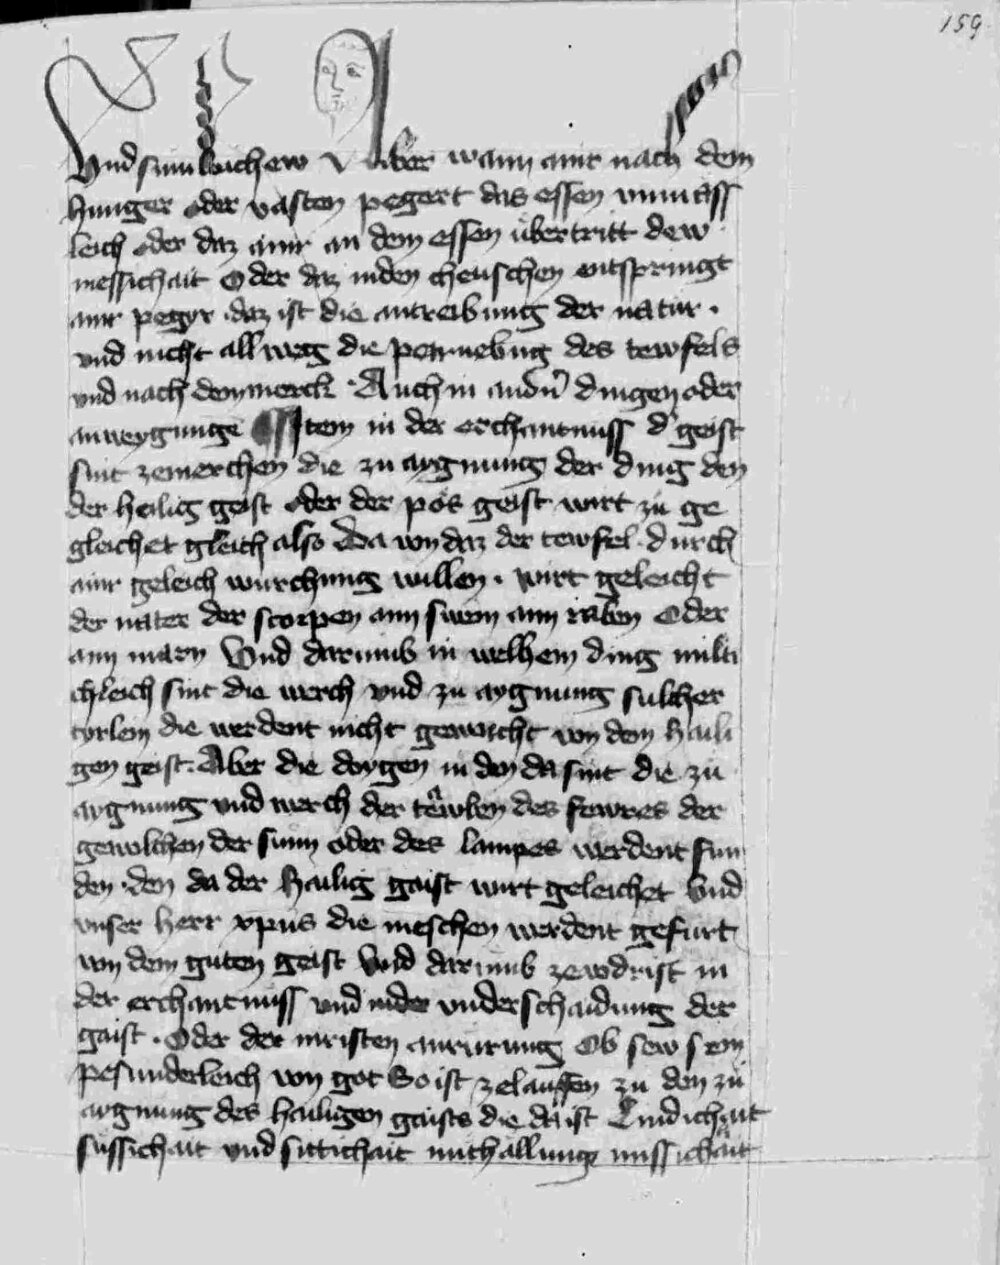 159
Und sein leichew Aber wann ainr nach dem
hunger oder vasten pegert das essen vnmass
leich oder daz ainr an dem essen übertritt dew
messichait Oder daz inden cheuschen entspringt
ainr pegyr · daz ist die antreibung der natur ·
vnd nicht all weg die petruebnug des tewfels
vnd nach dem merck · Auch in andn̄ dingen oder
anweygunge Item in der erchantnuss d' geist
sint zemerchen die zu aygnung der ding den
der heilig geist oder der pös geist wirt zu ge
gleichet gleich also Da von daz der tewfel durch
ainr geleich wurchung willen · wirt geleicht
der nater der scorpen aim swein aim raben Oder
aim Und darumb in welhem ding
chleich sint die werch vnd zu aygnung sulcher
tyrlein die werdent nicht gewarcht von dem haili
gen geist · Aber die doygen in den da sint die zu
aygnung vnd werch der tawben des fewres der
gewolchen der sunn oder des lampes werdent fun
den · den da der hailig gaist wirt geleichet Vnd
vnser herr xp̄us die meschen werdent gefurt
von dem guten geist Vnd darumb zewdrist in
der erchantnuss vnd inder vnderschaidung der
gaist · Oder der inristen anrurung Ob sew sein
pesunderleich von got So ist zelaussen zu den zu
aygnung des hailigen gaists die da ist Lindichait
süssichait vnd sittichait mithallung messichait